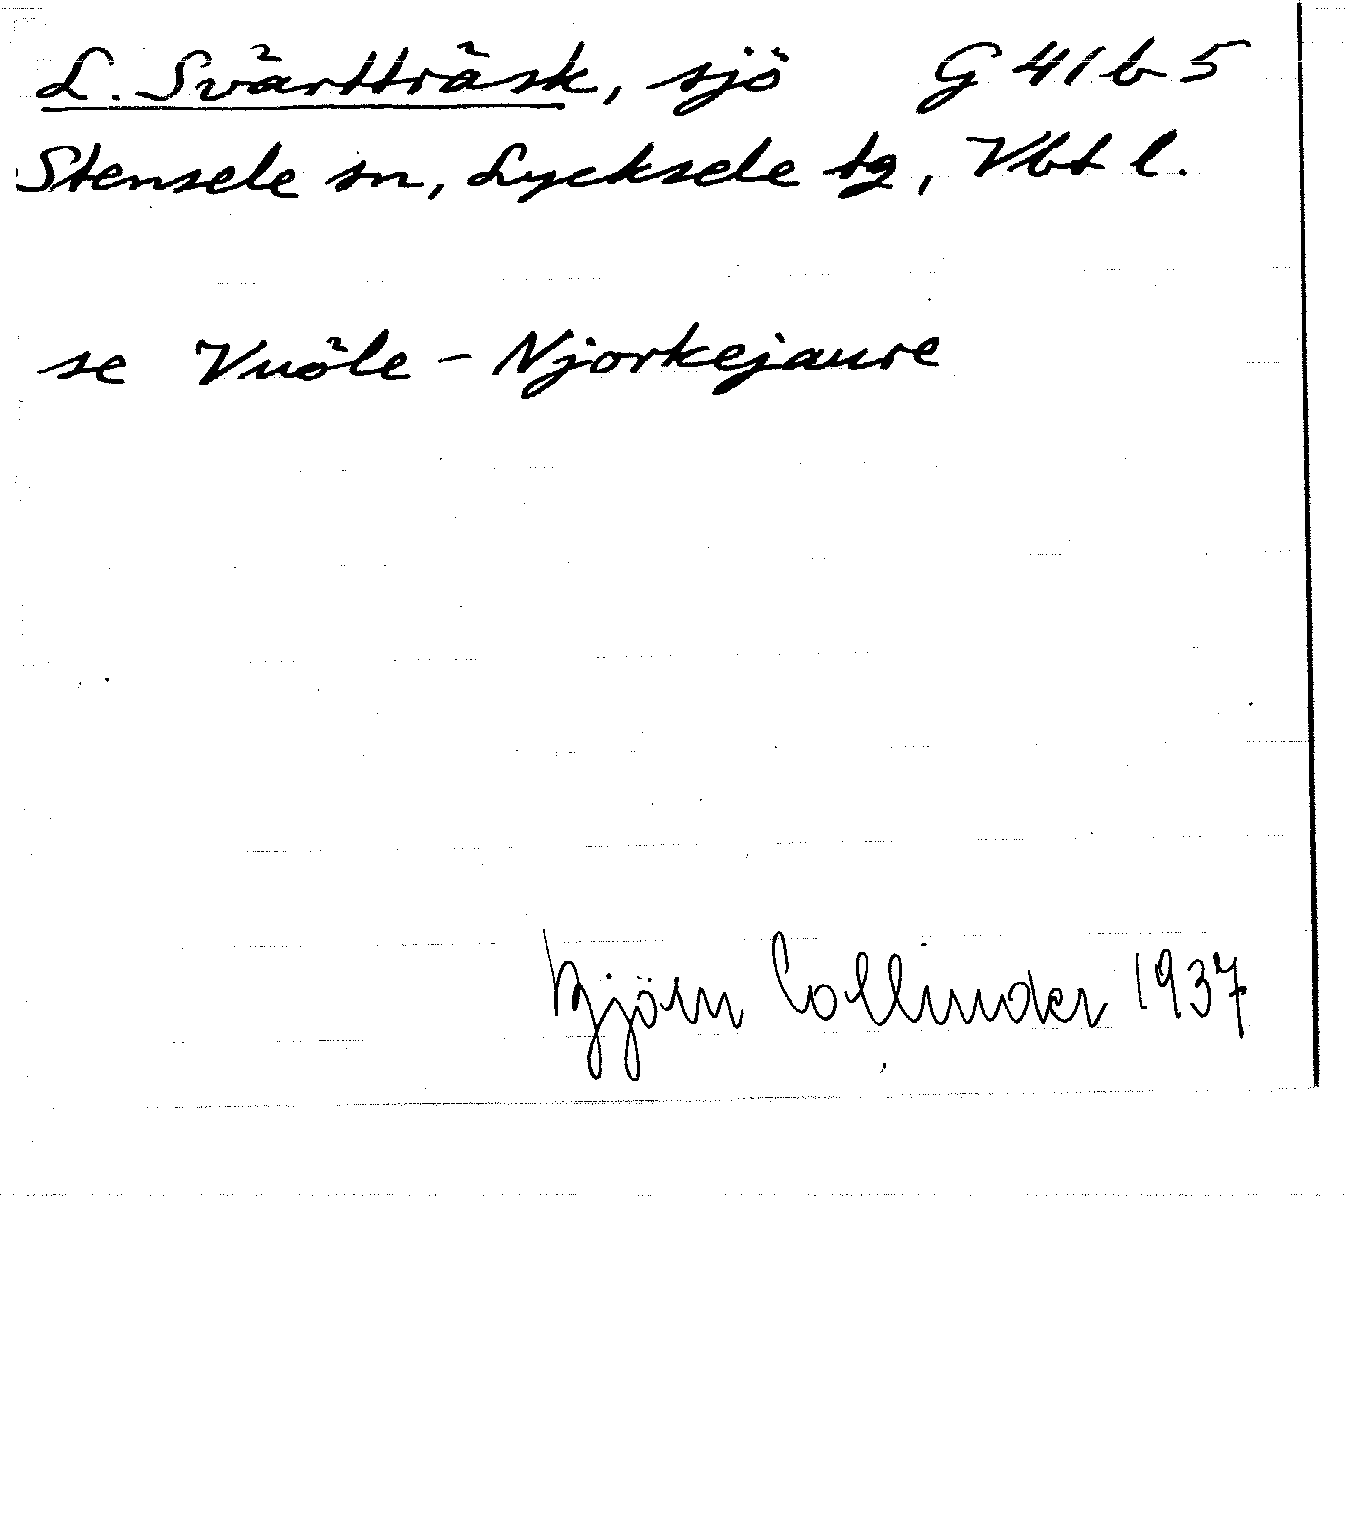 L. Svärtträsk, sjö G 41 b 5
Stensele sn, Lycksele tg, Vbt l.
se Vuöle - Njorkejaure
Björn Collinder 1937